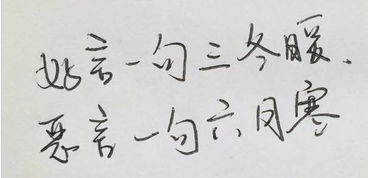 好言一句三冬暖、
恶言一句六月寒